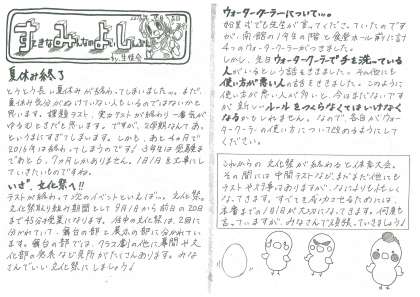 すてきなみんなのよしの
夏休み終了
とうとう長い夏休みが終わってしまいました…。まだ、
夏休み気分がぬけていない人もいるのではないかと
思います。課題テスト、実力テストが終わり一番気が
ゆるむときだと思います。ですが、2学期なんてあっ
という間にすぎてしまいます。しかも、あと4ヶ月で
2016年は終わってしまうのです!3年生は受験ま
であと6,7ヶ月しかありません。1日1日を大事にし
ていきたいものですね。
いざ、文化祭へ!!
テストが終わって次のイベントといえば…。文化祭。
文化祭取り組み期間として9月1日から前日の20日
まで45分授業になります。
体中の文化祭は2日に
分かれていて、舞台の部と展示の部に分かれて
います。舞台の部では、クラス劇の他に幕間や文
化部の発表など見所がたくさんあります。みな
さんでいい文化祭にしましょう♪
ウォータークーラーについて…。
始業式でも先生が言ってくださっていたのです
が、南館の1年生の階と食堂ホール前に計
4つのウォータークーラーがつきました。
しかし、先日ウォータークーラーで手を洗っている
人がいるという話をききました。その他にも
使い方が悪い人の話をききました。このように
使い方が悪い人が多いと、今はまだないです
が新しいルールをつくらなくてはいけなくな
るかもしれません。なので、各自がウォー
タークーラーの使い方について改めるようにして
ください。
これからの文化祭が終わると体育大会。
その間には中間テストなど、まだまだ他にも
テストや行事はありますが、なによりも忙しく
なってきます。すべてを成功させるためには、
本番までの1日1日が大切になってきます。何度も
言っていますが、みなさんで頑張っていきましょう♪